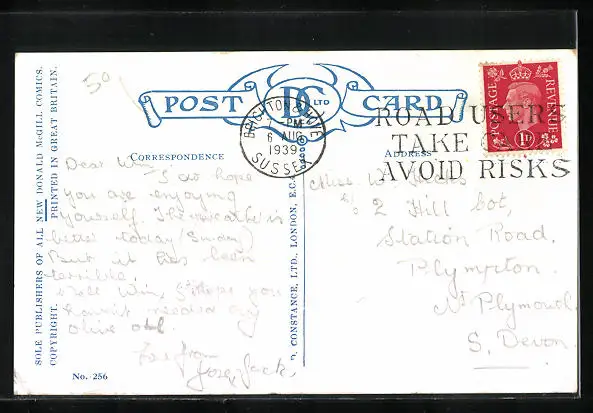 50
POST DC LTD CARD
BRIGHTON & HOVE
7 - PM
6 AUG
1939
SUSSEX
ROAD USERS
TAKE
AVOID RISKS
POSTAGE REVENUE
1D
CORRESPONDENCE
ADDRESS
Dear Win
I do hope
you are enjoying
yourself. The weather is
better today (Sunday)
But it has been
terrible.
Well Win, I hope you
haven't needed any
olive oil.
from
Jack.
Miss W.
2 Hill Cot,
Station Road.
Plympton.
Nr Plymouth
S. Devon.
SOLE PUBLISHERS OF ALL NEW DONALD McGILL COMICS.
COPYRIGHT. PRINTED IN GREAT BRITAIN.
D. CONSTANCE, LTD., LONDON, E.C.
No. 256